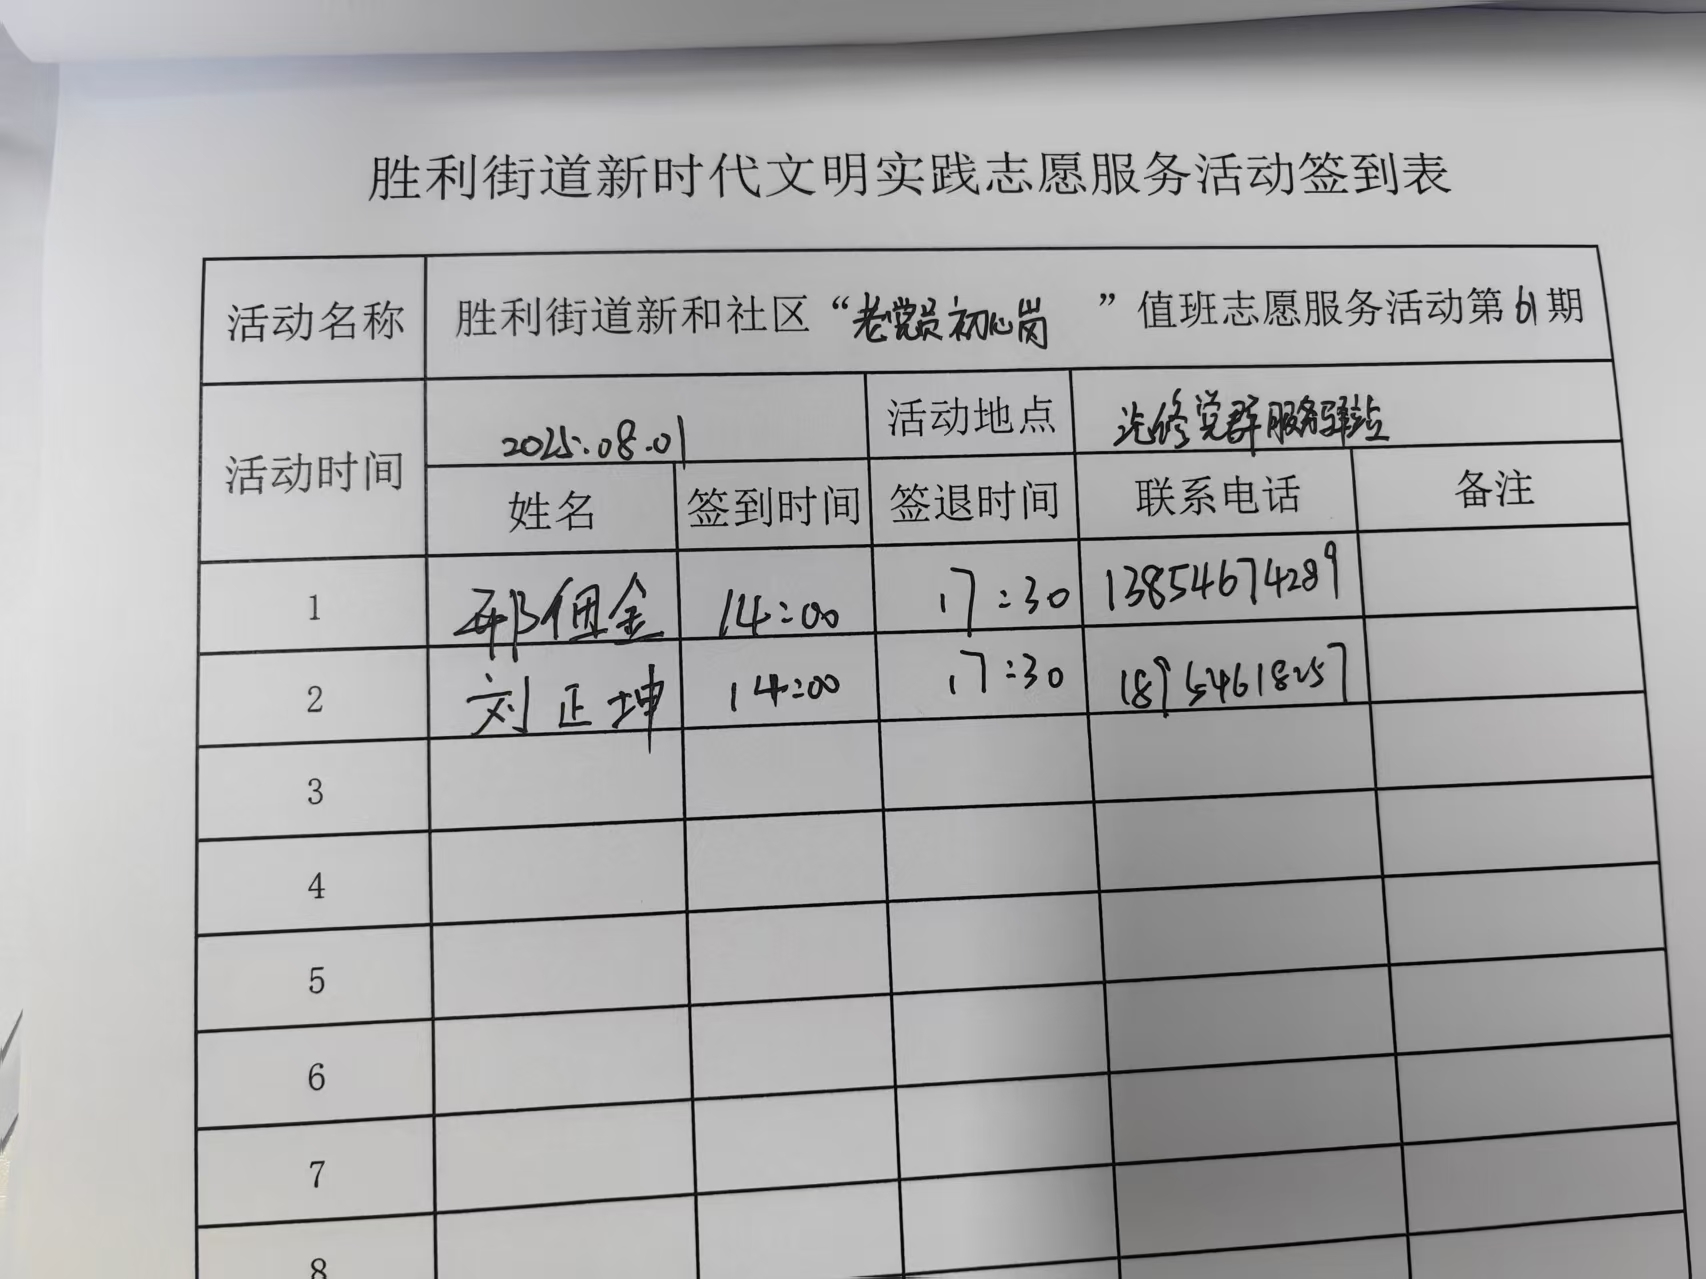 胜利街道新时代文明实践志愿服务活动签到表
活动名称 胜利街道新和社区“老党员初心岗 ”值班志愿服务活动第61期
活动时间 2025.08.01 活动地点 党群服务驿站
姓名 签到时间 签退时间 联系电话 备注
1 邢佃金 14:00 17:30 13854674289
2 刘正坤 14:00 17:30 18954618257
3
4
5
6
7
8